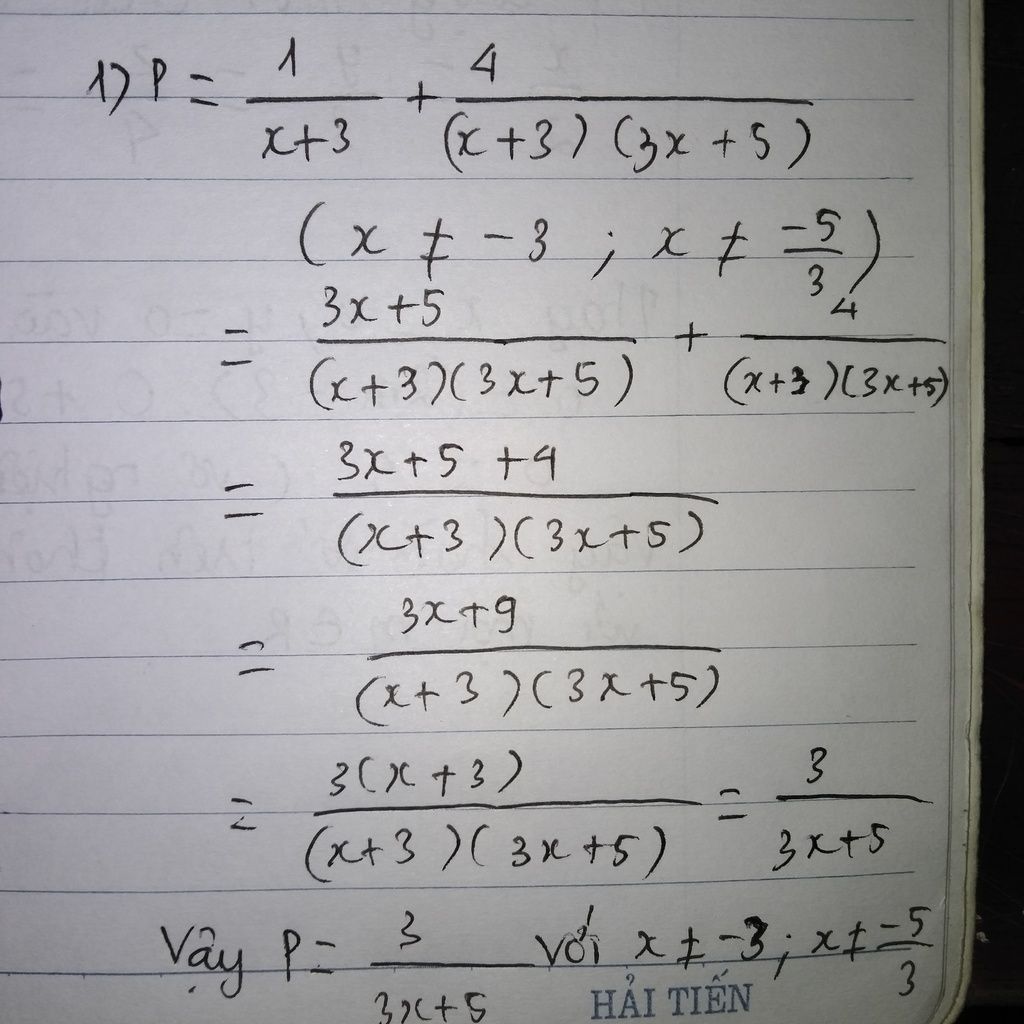 1) P = 1/(x+3) + 4/((x+3)(3x+5))
(x ≠ -3 ; x ≠ -5/3)
= (3x+5)/((x+3)(3x+5)) + 4/((x+3)(3x+5))
= (3x+5+4)/((x+3)(3x+5))
= (3x+9)/((x+3)(3x+5))
= 3(x+3)/((x+3)(3x+5)) = 3/(3x+5)
Vậy P = 3/(3x+5) với x ≠ -3 ; x ≠ -5/3
HẢI TIẾN